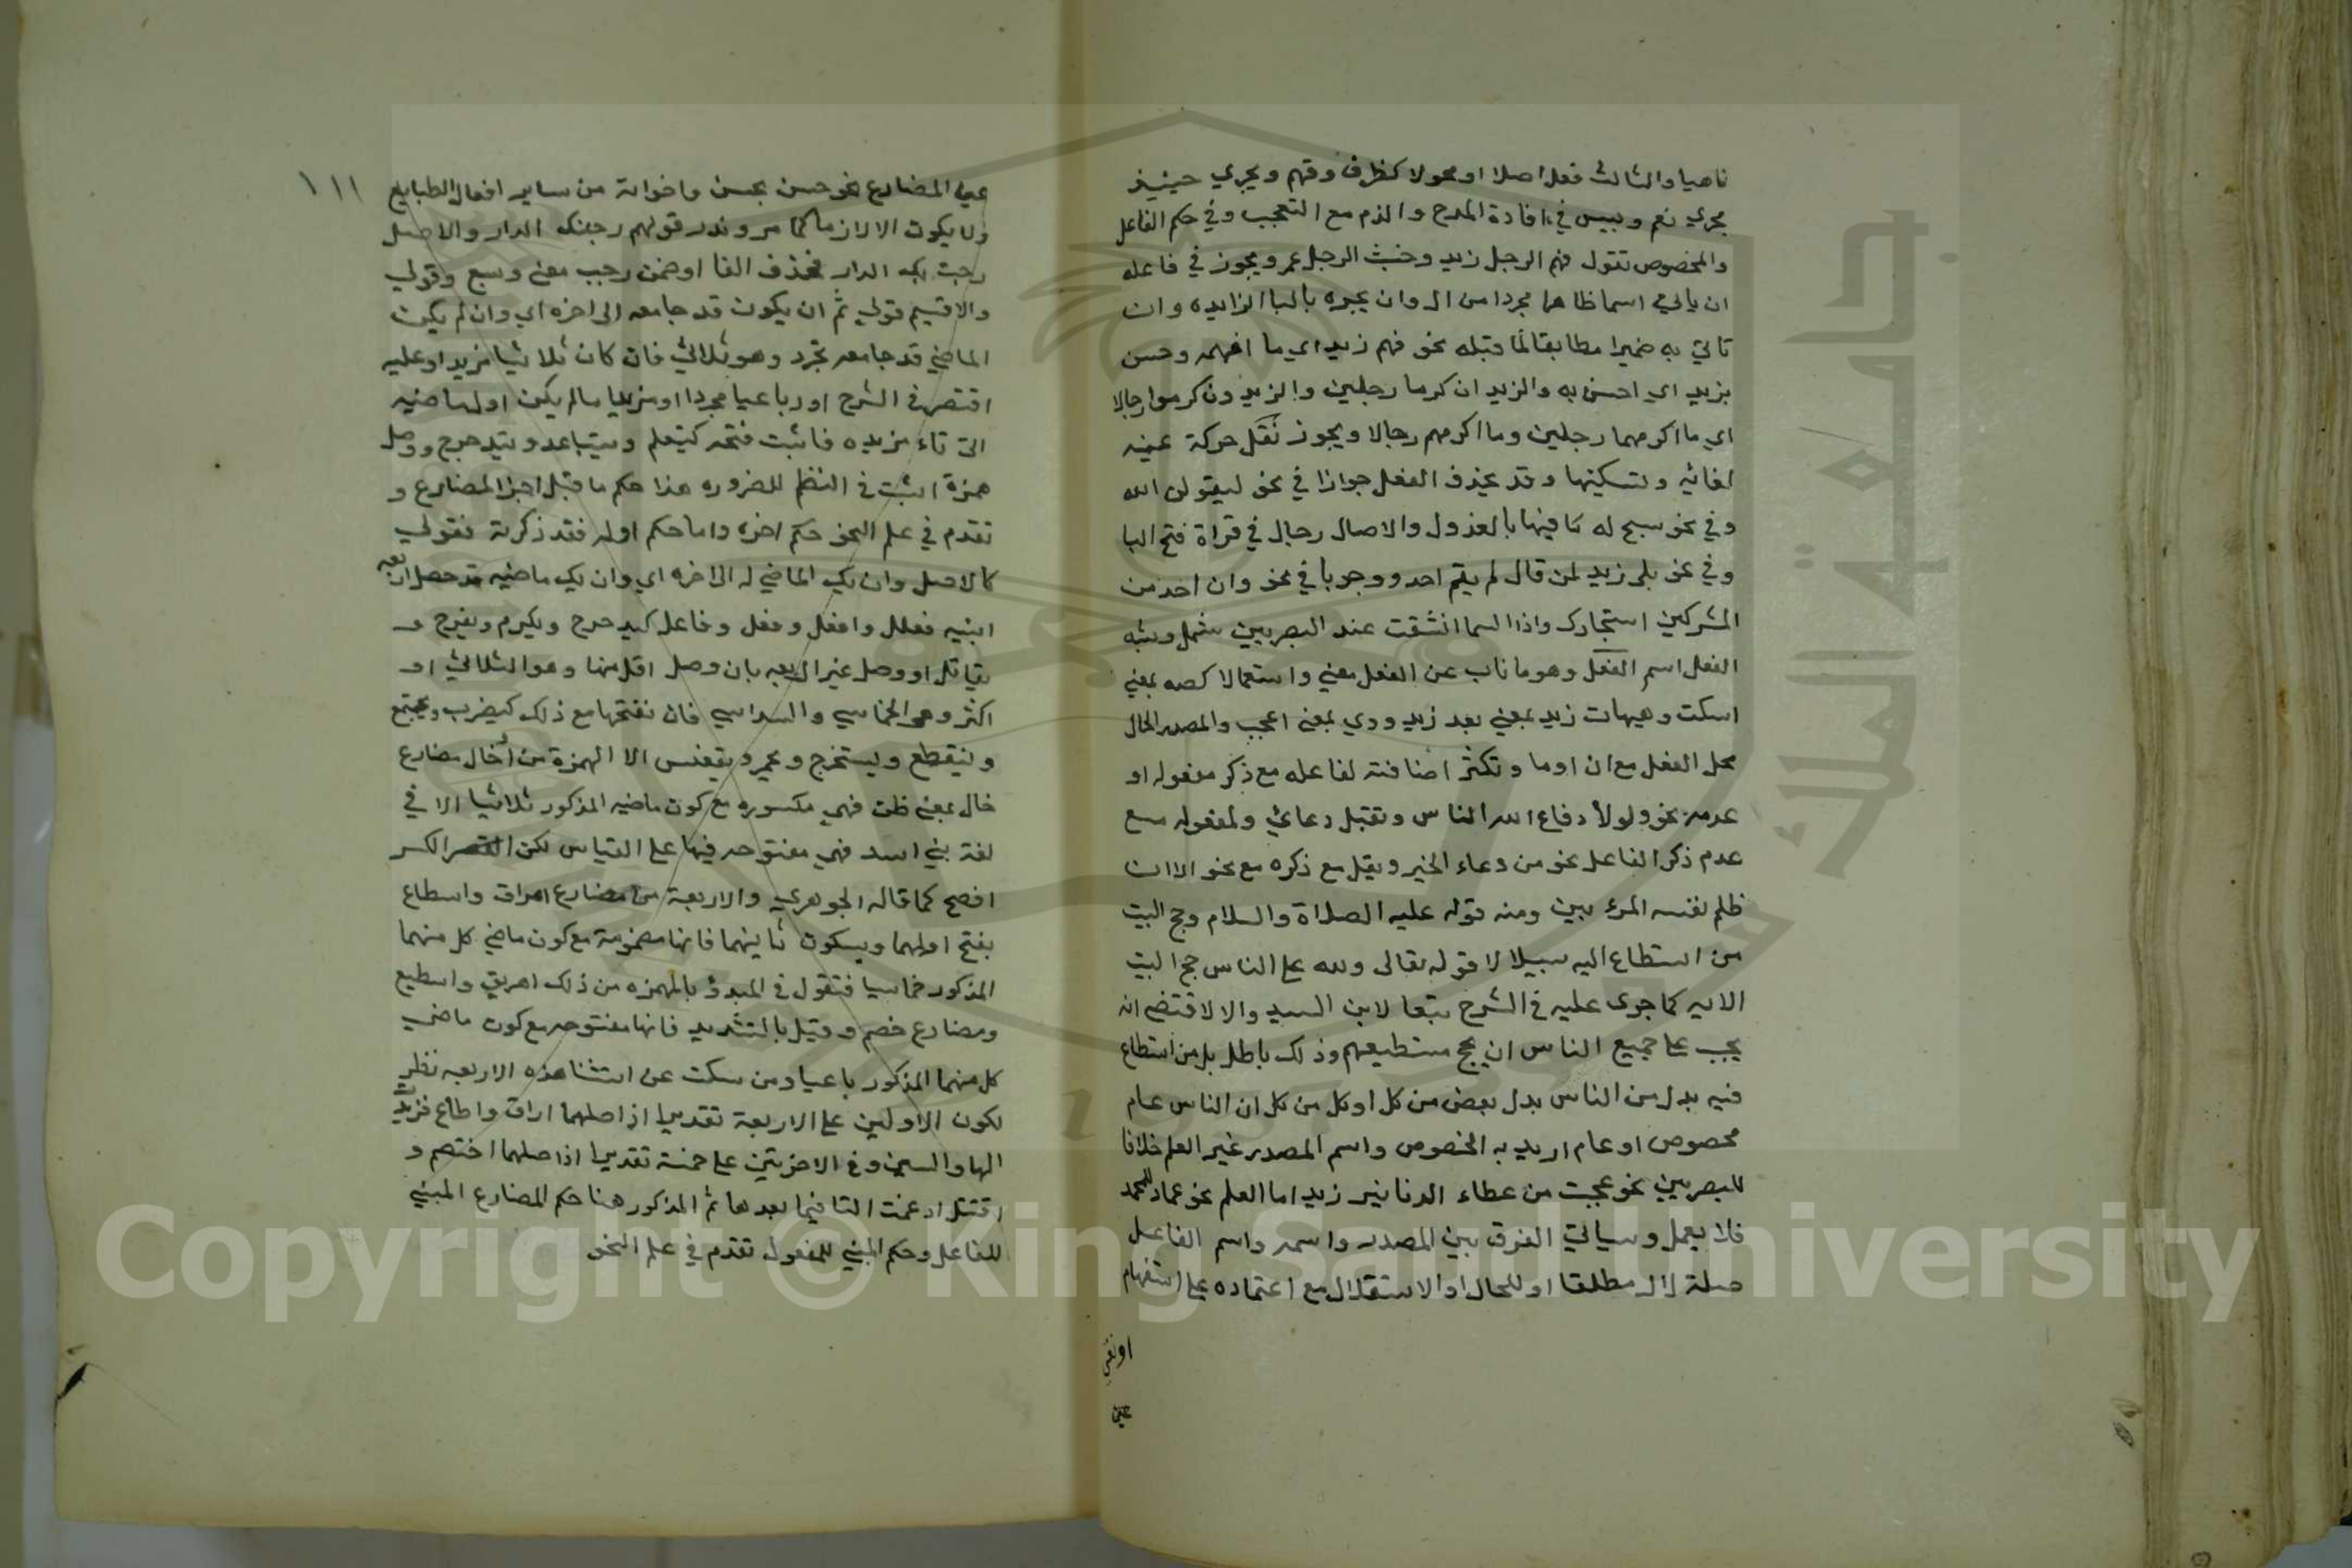 ناهيا والثالث فعلا اصلا او محولا كظرف وفهم ويجري حينيذ
مجري نعم وبيس في افادة المدح والذم مع التعجب وفي حكم الفاعل
والمخصوص تقول فهم الرجل زيد وخبث الرجل عمر ويجوز في فاعله
ان ياتي اسما ظاهرا مجردا من ال وان يجره بالبا الزايده وان
تاتي به ضميرا مطابقا لما قبله نحو فهم زيد اي ما افهمه وحسن
بزيد اي احسن به والزيدان كرما رجلين والزيدون كرموا رجالا
اي ما اكرمهما رجلين وما اكرمهم رجالا ويجوز نقل حركة عينه
لفائه وتسكينها وقد يحذف الفعل جوازا في نحو ليقولن الله
وفي نحو يسبح له فيها بالغدول والاصال رجال في قراة فتح البا
وفي نحو بلى زيد لمن قال لم يقم احد ووجوبا في نحو وان احد من
المشركين استجارك واذا السما انشقت عند البصريين يعمل وشبه
الفعل اسم الفعل وهو ما ناب عن الفعل معني واستعمالا كصه بمعني
اسكت وهيهات زيد بمعني بعد زيد ووي بمعني اعجب والمصدر الحال
محل الفعل مع ان او ما وتكثر اضافته لفاعله مع ذكر مفعوله او
عدمه نحو ولولا دفاع الله الناس وتقبل دعائي ولمفعوله مع
عدم ذكر الفاعل نحو من دعاء الخير ويقل مع ذكره مع نحو الا ان
ظلم نفسه المرء بين ومنه قوله عليه الصلاة والسلام وحج البيت
من استطاع اليه سبيلا لا قوله تعالى ولله على الناس حج البيت
الايه كما جرى عليه في الشرح تبعا لابن السيد والا لاقتضى انه
يجب على جميع الناس ان يحج مستطيعهم وذلك باطل بل من استطاع
فيه بدل من الناس بدل بعض من كل او كل من كل ان الناس عام
مخصوص او عام اريد به الخصوص واسم المصدر غير العلم خلافا
للبصريين نحو عجبت من عطاء الدنانير زيد اما العلم نحو حماد للحمد
فلا يعمل وسياتي الفرق بين المصدر واسمه واسم الفاعل
صلة لال مطلقا او للحال او الاستقبال مع اعتماده على استفهام
او نفي
عين
١١١
عين المضارع نحو حسن يحسن واخواته من ساير افعال الطبايع
ولا يكون الا لازما كما مر وندر قولهم رحبتك الدار والاصل
رحبت بك الدار فحذف البا او ضمن رحب معني وسع وقولي
والا قسيم قولي ثم ان يكون قد جامعه الى اخره اي وان لم يكن
الماضي قد جامعه تجرد وهو ثلاثي فان كان ثلاثيا مزيدا وعليه
اقتصر في الشرح او رباعيا مجردا او مزيدا ما لم يكن اول ماضيه
التي تاء مزيده فاثبت فتحه كيتعلم ويتباعد ويتدحرج ووصل
همزة اثبت في النظم للضروره هذا حكم ما قبل اخر المضارع و
تقدم في علم النحو حكم اخره واما حكم اوله فقد ذكرته فقولي
كالاصل وان يك الماضي له الى اخره اي وان يك ماضيه قد حصل اربعه
ابنيه فعلل وافعل وفعل وفاعل كيدحرج ويكرم ويفرح و
يقاتل او وصل غير اربعه بان وصل اقل منها وهو الثلاثي او
اكثر وهو الخماسي والسداسي فان تفتحها مع ذلك كيضرب ويجتمع
وينقطع ويستخرج ويحمر ويقعنسس الا الهمزة من أخال مضارع
خال بمعني ظن فهي مكسوره مع كون ماضيه المذكور ثلاثيا الا في
لغة بني اسد فهي مفتوحه فيها على القياس لكن الكسر
افصح كما قاله الجوهري والاربعة من مضارع اهراق واسطاع
بفتح اولهما وبسكون ثانيهما فانها مضمومة مع كون ماضي كل منهما
المذكور خماسيا فتقول في المبدؤ بالهمزه من ذلك اهريق واسطيع
ومضارع خصم وقتل بالتشديد فانها مفتوحه مع كون ماضي
كل منهما المذكور رباعيا ومن سكت عن استثنا هذه الاربعه نظر
لكون الاولين على الاربعة تقديرا اذ اصلهما اراق واطاع فزيدت
الها والسين وفي الاخريين على خمسة تقديرا اذ اصلهما اختصم و
اقتتل ادغمت التا فيما بعدها ثم المذكور هنا حكم المضارع المبني
للفاعل وحكم المبني للمفعول تقدم في علم النحو
Copyright © King Saud University